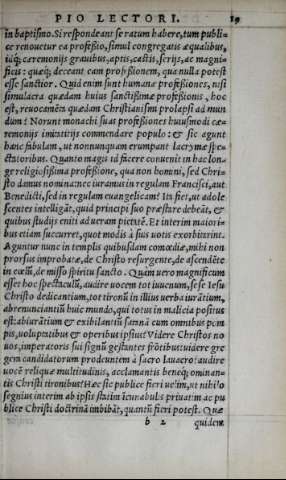 PIO LECTORI. 19
in baptismo. Si respondeãns se ratum habere, tum publi-
ce renouetur ea professio, simul congregatis æqualibus,
idq́; cæremonijs grauibus, aptis, castis, serijs, ac magni-
ficis: quæq́; deceant eam professionem, qua nulla potest
esse sanctior. Quid enim sunt humanæ professiones, nisi
simulacra quædam huius sanctissimæ professionis, hoc
est, reuocamẽta quædam Christianismi prolapsi ad mun
dum? Norunt monachi suas professiones huiusmodi cæ-
remonijs inuectitijs commendare populo: & sic agunt
hanc fabulam, ut nonnunquam erumpant lacrymæ spe-
ctatoribus. Quanto magis id facere conuenit in hac lon-
ge religiosissima professione, qua non homini, sed Chri-
sto damus nomina: nec iuramus in regulam Francisci, aut
Benedicti, sed in regulam euangelicam? Ita fiet, ut adole
scentes intelligãt, quid principi suo præstare debeãt, &
quibus studijs eniti ad ueram pietatẽ. Et interim maiori-
bus etiam succurret, quot modis à suis uotis exorbitarint.
Aguntur nunc in templis quibusdam comœdiæ, mihi non
prorsus improbatæ, de Christo resurgente, de ascendẽte
in cœlũ, de misso spiritu sancto. Quàm uero magnificum
esset hoc spectaculũ, audire uocem tot iuuenum, sese Iesu
Christo dedicantium, tot tironũ in illius uerba iurãtium,
abrenunciantiũ huic mundo, qui totus in malicia positus
est: abiurãtium & exibilantiũ satanã cum omnibus pom
pis, uoluptatibus & operibus ipsius? Videre Christos no
uos, imperatoris sui signũ gestantes frõtibus: uidere gre
gem candidatorum prodeuntem à sacro lauacro: audire
uocẽ reliquæ multitudinis, acclamantis beneq́; ominan-
tis Christi tironibus? Hæc sic publice fieri uelim, ut nihilo
segnius interim ab ipsis statim icunabulis priuatim ac pu
blice Christi doctrinã imbibãt, quantũ fieri potest. Quæ
b 2 quidem